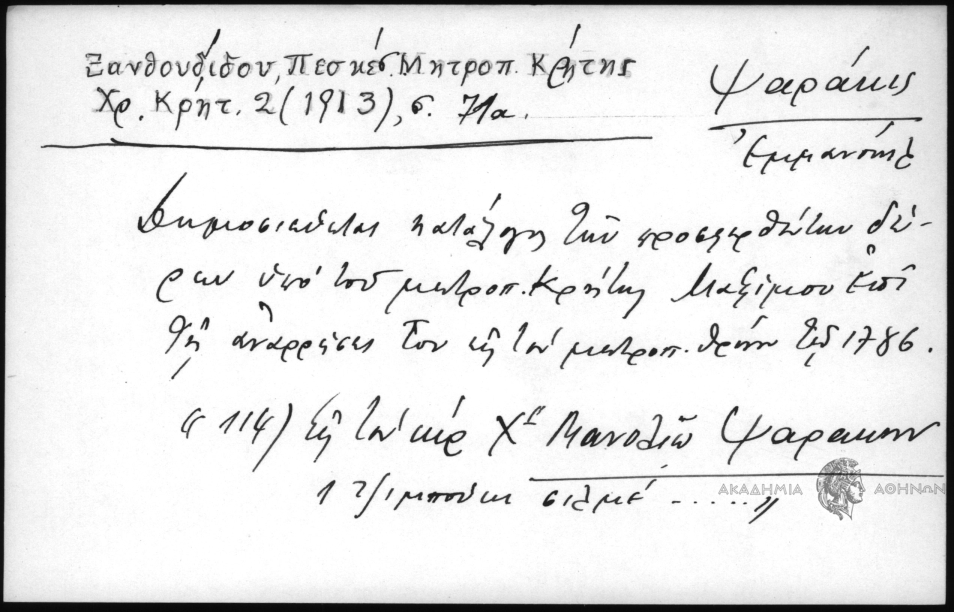 Ξανθουδίδου, Πεσκές Μητροπ. Κρήτης
Χρ. Κρήτ. 2 (1913), σ. 71α.
Ψαράκις
Ἐμμανουήλ
Δημοσιεύεται κατάλογος τῶν προσφερθέντων δώ-
ρων ὑπό τοῦ μητροπ. Κρήτης Μαξίμου ἐπί
τῇ ἀναρρήσει του εἰς τόν μητροπ. θρόνον τῷ 1786.
« 114) Εἰς τόν κύρ Χ" Μανολιῶ Ψαρακην
1 τζιμπούκι σιλμέ ..... »
ΑΚΑΔΗΜΙΑ ΑΘΗΝΩΝ